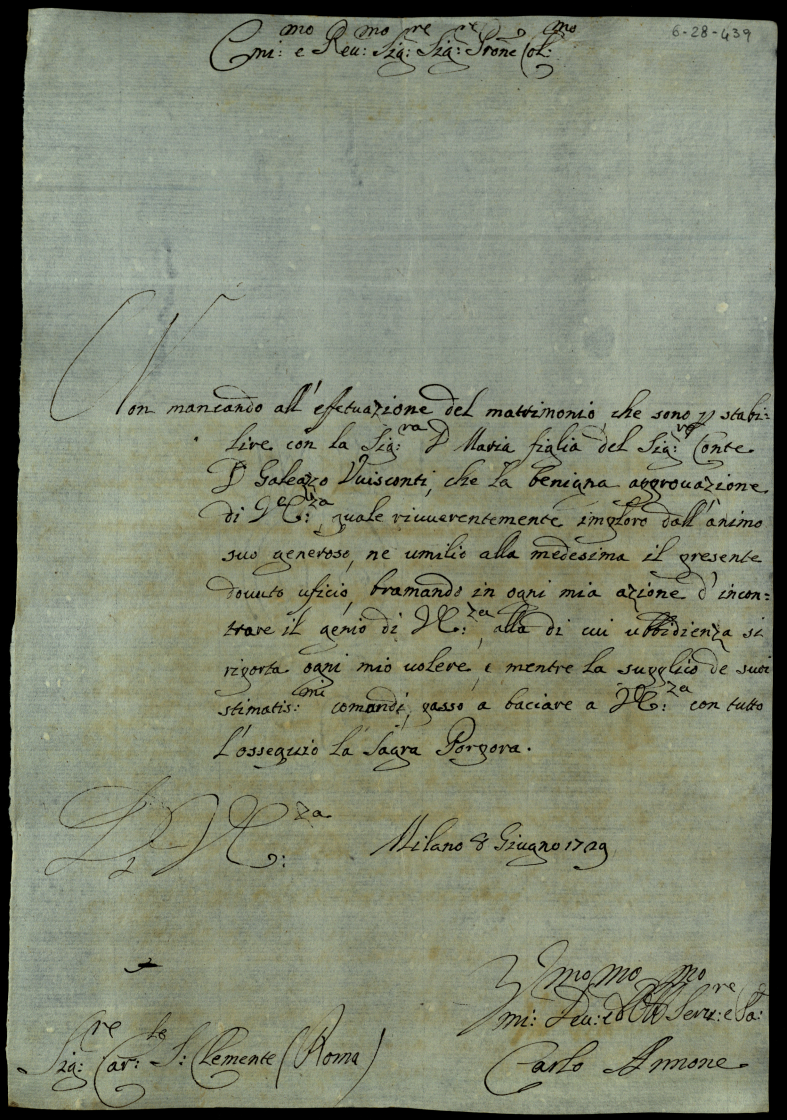 6-28-439
Emi:mo e Reu:mo Sig:re Sig:re Prone Col:mo
Non mancando all'efetuazione del matrimonio che sono p stabi=
lire con la Sig:ra D Maria figlia del Sig:re Conte
D Galeazo Vuisconti, che la benigna approuazione
di VE:za, quale riuuerentemente imploro dall'animo
suo generoso, ne umilio alla medesima il presente
douuto uficio, bramando in ogni mia azione d'incon=
trare il genio di VE:za, alla di cui ubbidienza si
riporta ogni mio uolere, e mentre la supplico de suoi
stimatis:mi comandi, passo a baciare a VE:za con tutto
l'ossequio la Sagra Porpora.
Di VE:za Milano 8 Giugno 1729
Vmi:mo Deu:mo ed Obb:mo Seru:re e Pa:
Sig:re Car:le S: Clemente (Roma)
Carlo Annone